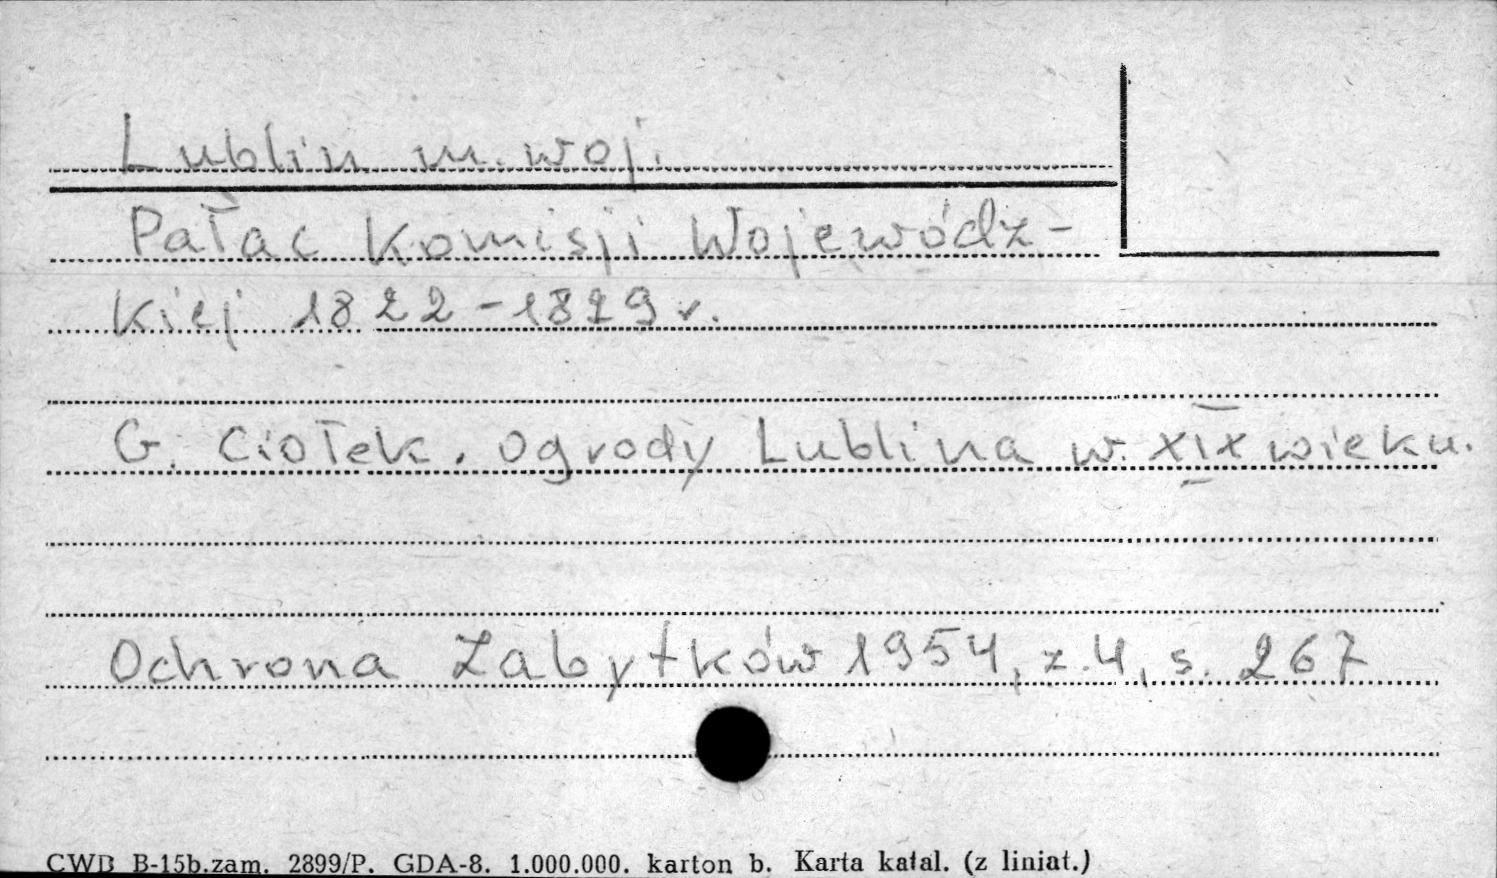 Lublin m. woj.
Pałac Komisji Wojewódz-
kiej 1822-1829 r.
G. Ciołek. Ogrody Lublina w. XIX wieku.
Ochrona Zabytków 1954, z. 4, s. 267
CWD B-15b.zam. 2899/P. GDA-8. 1.000.000. karton b. Karta katal. (z liniat.)